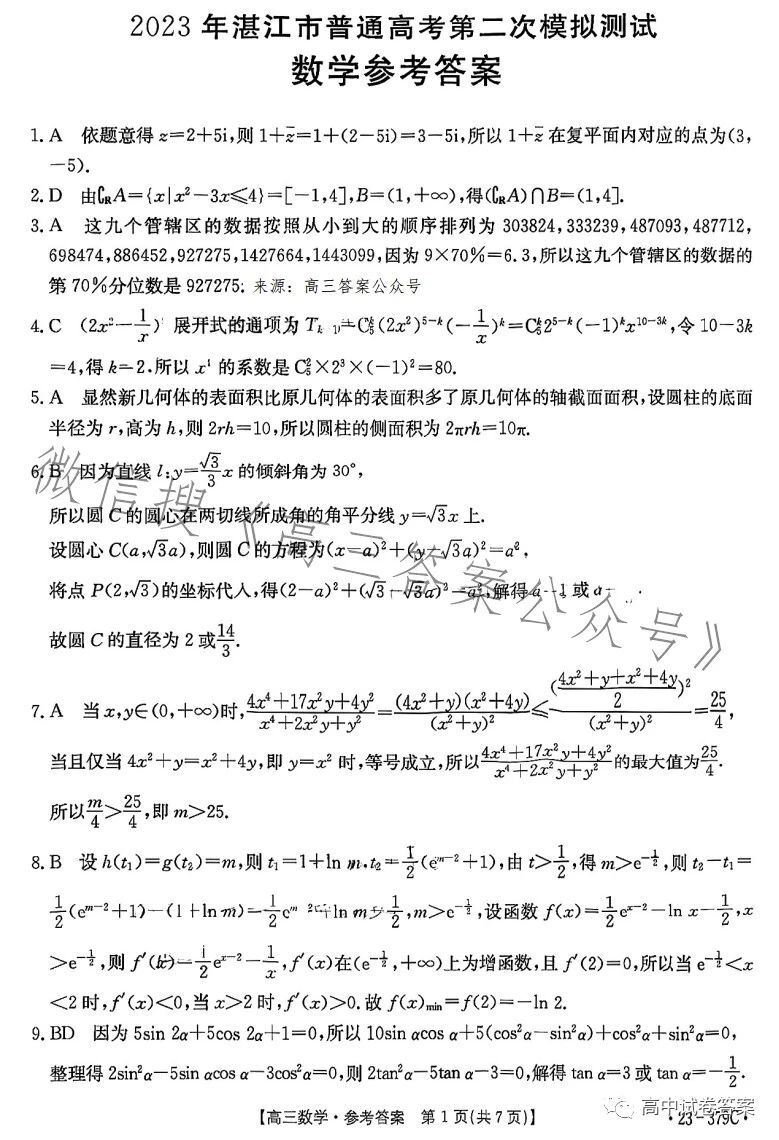 2023 年湛江市普通高考第二次模拟测试
数学参考答案
1. A 依题意得 z=2+5i,则 1+z̅=1+(2-5i)=3-5i,所以 1+z̅ 在复平面内对应的点为(3,
-5).
2. D 由∁RA={x|x²-3x≤4}=[-1,4],B=(1,+∞),得(∁RA)∩B=(1,4].
3. A 这九个管辖区的数据按照从小到大的顺序排列为 303824,333239,487093,487712,
698474,886452,927275,1427664,1443099,因为 9×70%=6.3,所以这九个管辖区的数据的
第 70%分位数是 927275. 来源: 高三答案公众号
4. C (2x²-1/x) 展开式的通项为 T =C₅ᵏ(2x²)⁵⁻ᵏ(-1/x)ᵏ=C₅ᵏ2⁵⁻ᵏ(-1)ᵏx¹⁰⁻³ᵏ,令 10-3k
=4,得 k=2.所以 x 的系数是 C₅²×2³×(-1)²=80.
5. A 显然新几何体的表面积比原几何体的表面积多了原几何体的轴截面面积,设圆柱的底面
半径为 r,高为 h,则 2rh=10,所以圆柱的侧面积为 2πrh=10π.
6. B 因为直线 l:y=√3/3 x 的倾斜角为 30°,
所以圆 C 的圆心在两切线所成角的角平分线 y=√3x 上.
设圆心 C(a,√3a),则圆 C 的方程为(x-a)²+(y-√3a)²=a²,
将点 P(2,√3)的坐标代入,得(2-a)²+(√3-√3a)²=a²,解得 a=1 或 a=
故圆 C 的直径为 2 或14/3.
7. A 当 x,y∈(0,+∞)时,(4x⁴+17x²y+4y²)/(x⁴+2x²y+y²)=(4x²+y)(x²+4y)/(x²+y²)²≤((4x²+y+x²+4y)/2)²/(x²+y)²=25/4,
当且仅当 4x²+y=x²+4y,即 y=x² 时,等号成立,所以(4x⁴+17x²y+4y²)/(x⁴+2x²y+y²)的最大值为25/4.
所以m/4>25/4,即 m>25.
8. B 设 h(t₁)=g(t₂)=m,则 t₁=1+ln m,t₂=1/2(eᵐ⁻²+1),由 t>1/2,得 m>e^(-1/2),则 t₂-t₁=
1/2(eᵐ⁻²+1)-(1+ln m)=1/2eᵐ⁻²-ln m-1/2,m>e^(-1/2),设函数 f(x)=1/2eˣ⁻²-ln x-1/2,x
>e^(-1/2),则 f′(x)=1/2eˣ⁻²-1/x,f′(x)在(e^(-1/2),+∞)上为增函数,且 f′(2)=0,所以当 e^(-1/2)<x
<2 时,f′(x)<0,当 x>2 时,f′(x)>0.故 f(x)min=f(2)=-ln 2.
9. BD 因为 5sin 2α+5cos 2α+1=0,所以 10sin αcos α+5(cos²α-sin²α)+cos²α+sin²α=0,
整理得 2sin²α-5sin αcos α-3cos²α=0,则 2tan²α-5tan α-3=0,解得 tan α=3 或 tan α=-1/2.
微信搜《高三答案公众号》
高中试卷答案
【高三数学·参考答案 第 1 页(共 7 页)】
·23-379C·